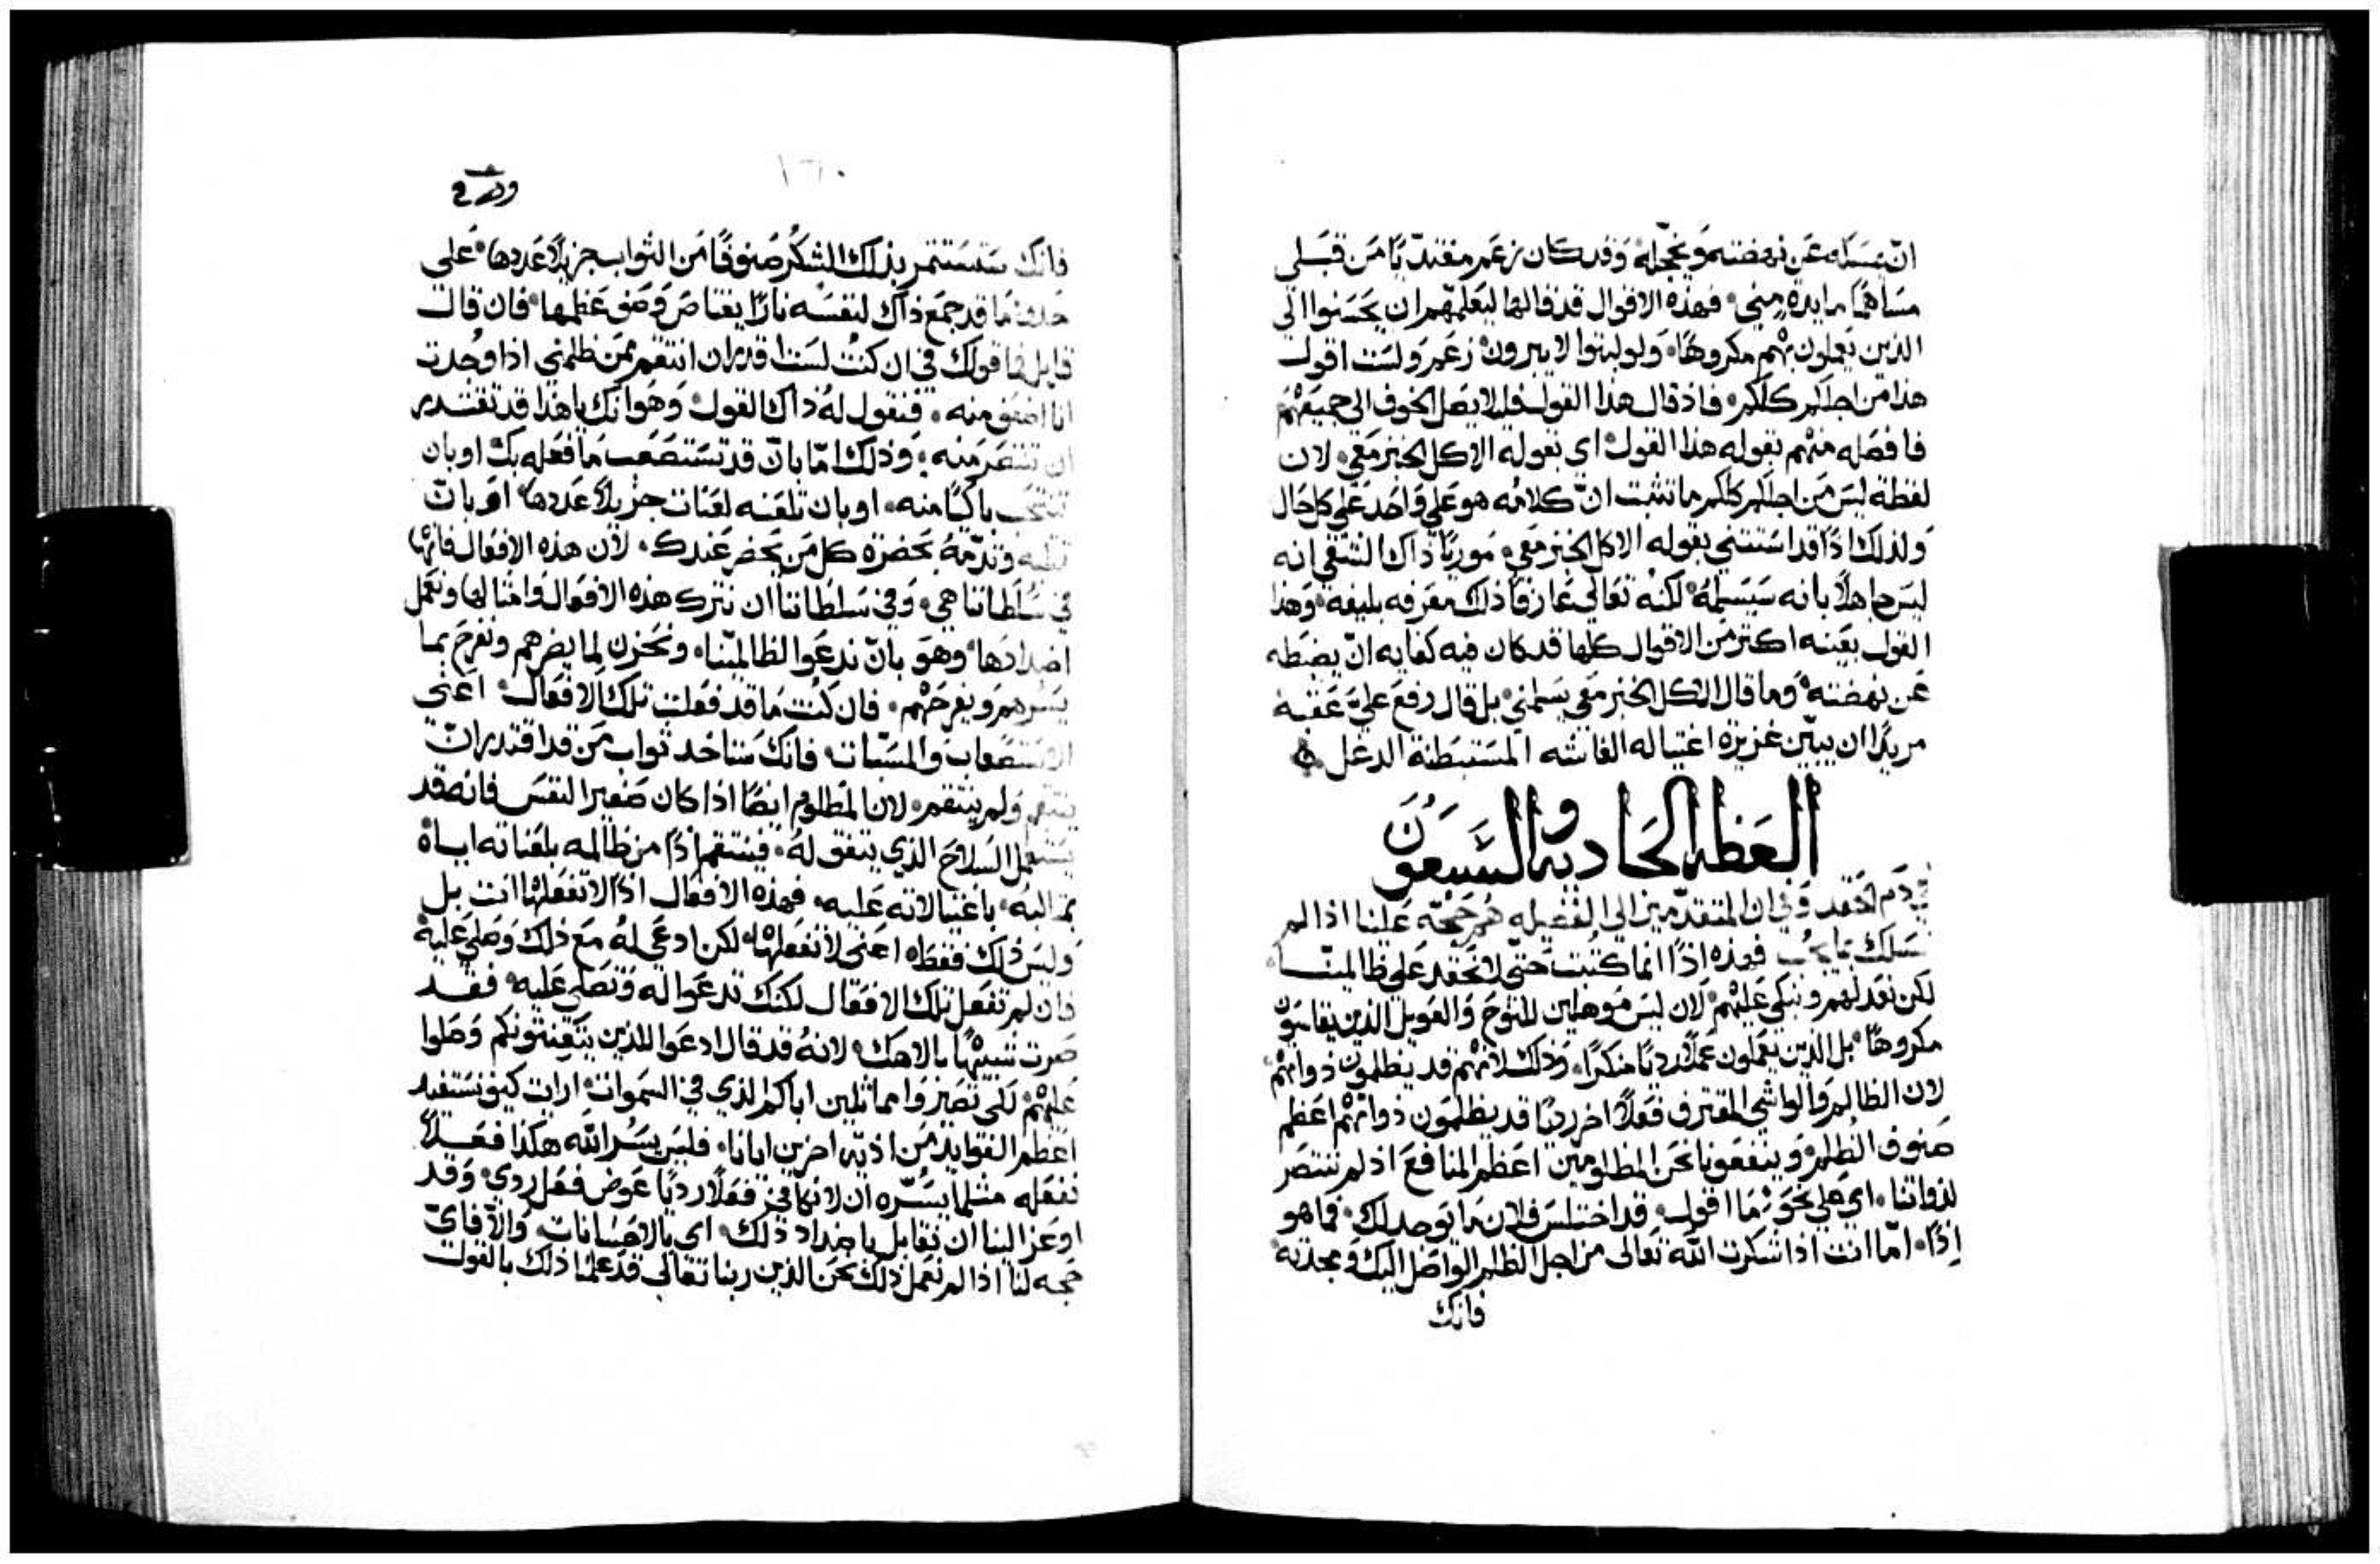 ان يمسكه عن نهضته ويخجله وقد كان زعم مقتديًا من قبلي
مساهمًا مايدة مني فهذه الاقوال قد قالها ليعلمهم ان يحسنوا الى
الذين يعملون بهم مكروهًا ولو لبثوا لا يبرون زعم ولست اقول
هذا من اجلكم كلكم فاذ قال هذا القول فليلا يصل الخوف الى جميعهم
فافصله منهم بقوله هذا القول اي بقوله الاكل الخبز معي لان
لفظة ليس من اجلكم كلكم ما تثبت ان كلامه هو على واحد على كل حال
ولذلك اذًا قد استثنى بقوله الاكل الخبز معي موريًا ذاك الشقي انه
ليس جاهلًا بانه سيسلمه لكنه تعالى عارفًا ذلك معرفه بليغه وهذا
القول بعينه اكثر من الاقوال كلها قد كان فيه كفايه ان يضبطه
عن نهضته وما قال الاكل الخبز معي يسلمني بل قال رفع علي عقبه
مريدًا ان يبين غزيرة اغتياله الغاشه المستبطنة الدغل
العظه الحاديه والسبعون
في ذم الحقد وفي ان المتقدمين الى الفضيله هم حجة علينا اذا لم
نسلك بما يجب فهذه اذًا انما كتبت حتى لا نحقد على ظالمينا
لكن نعذلهم ونبكي عليهم لان ليس موهلين للنوح والعويل الذين يقاسون
مكروهًا بل الذين يعملون عملًا رديًا منكرًا وذلك لانهم قد يظلمون ذواتهم
لان الظالم والواشي المقترف فعلًا اخر رديًا قد يظلمون ذواتهم اعظم
صنوف الظلم وينفعونا نحن المظلومين اعظم المنافع اذ لم ننتصر
لذواتنا اي على نحو ما اقول قد اختلس فلان ما يوجد لك فما هو
إذًا امّا انت اذا شكرت الله تعالى من اجل الظلم الواصل اليك ومجدته
فانك
فانك ستستثمر بذلك الشكر صنوفًا من الثواب جزيلًا عددها على
حذو ما قد جمع ذاك لنفسه نارًا يعتاص وصف عظمها فان قال
قايل فما قولك في ان كنت لست اقدر ان انتقم ممن ظلمني اذا وجدت
انا اضعف منه فنقول له ذاك القول وهو انك ياهذا قد تقتدر
ان تنتصر منه وذلك امّا بان قد تستصعب ما فعله بك او بان
تنتحب باكيًا منه او بان تلعنه لعنات جزيلًا عددها او بان
تثلبه وتذمه بحضرة كل من يحضر عندك لان هذه الافعال فانها
في سلطاننا هي وفي سلطاننا ان نترك هذه الافعال وامثالها ونعمل
اضدادها وهو بان ندعوا لظالمينا ونحزن لما يضرهم ونفرح بما
يسرهم ويفرحهم فان كنت ما قد فعلت تلك الافعال اعني
الاستصعاب والمسبات فانك ستاخذ ثواب من قد اقتدر ان
ينتقم ولم ينتقم لان المظلوم ايضًا اذا كان صغير النفس فانه قد
يستعمل السلاح الذي يتفق له فينتقم اذًا من ظالمه بلعناته اياه
بمثالبه باغتيالاته عليه فهذه الافعال اذًا لا تفعلها انت بل
وليس ذلك فقط اعني لا تفعلها لكن ادعي له مع ذلك وصلي عليه
فان لم تفعل تلك الافعال لكنك تدعوا له وتصلي عليه فقد
صرت شبيهًا بالاهك لانه قد قال ادعوا للذين يتعنتونكم وصلوا
عليهم لكي تصيروا مماثلين اباكم الذي في السموات ارايت كيف نستفيد
اعظم الفوايد من اذية اخرين ايانا فليس يسر الله هكذا فعلًا
نفعله مثلما يسره ان لا نكافى فعلًا رديًا عوض فعل ردى وقد
اوعز الينا ان نقابل باضداد ذلك اي بالاحسانات والا فاي
حجه لنا اذا لم نعمل ذلك نحن الذين ربنا تعالى قد علمنا ذلك بالقول